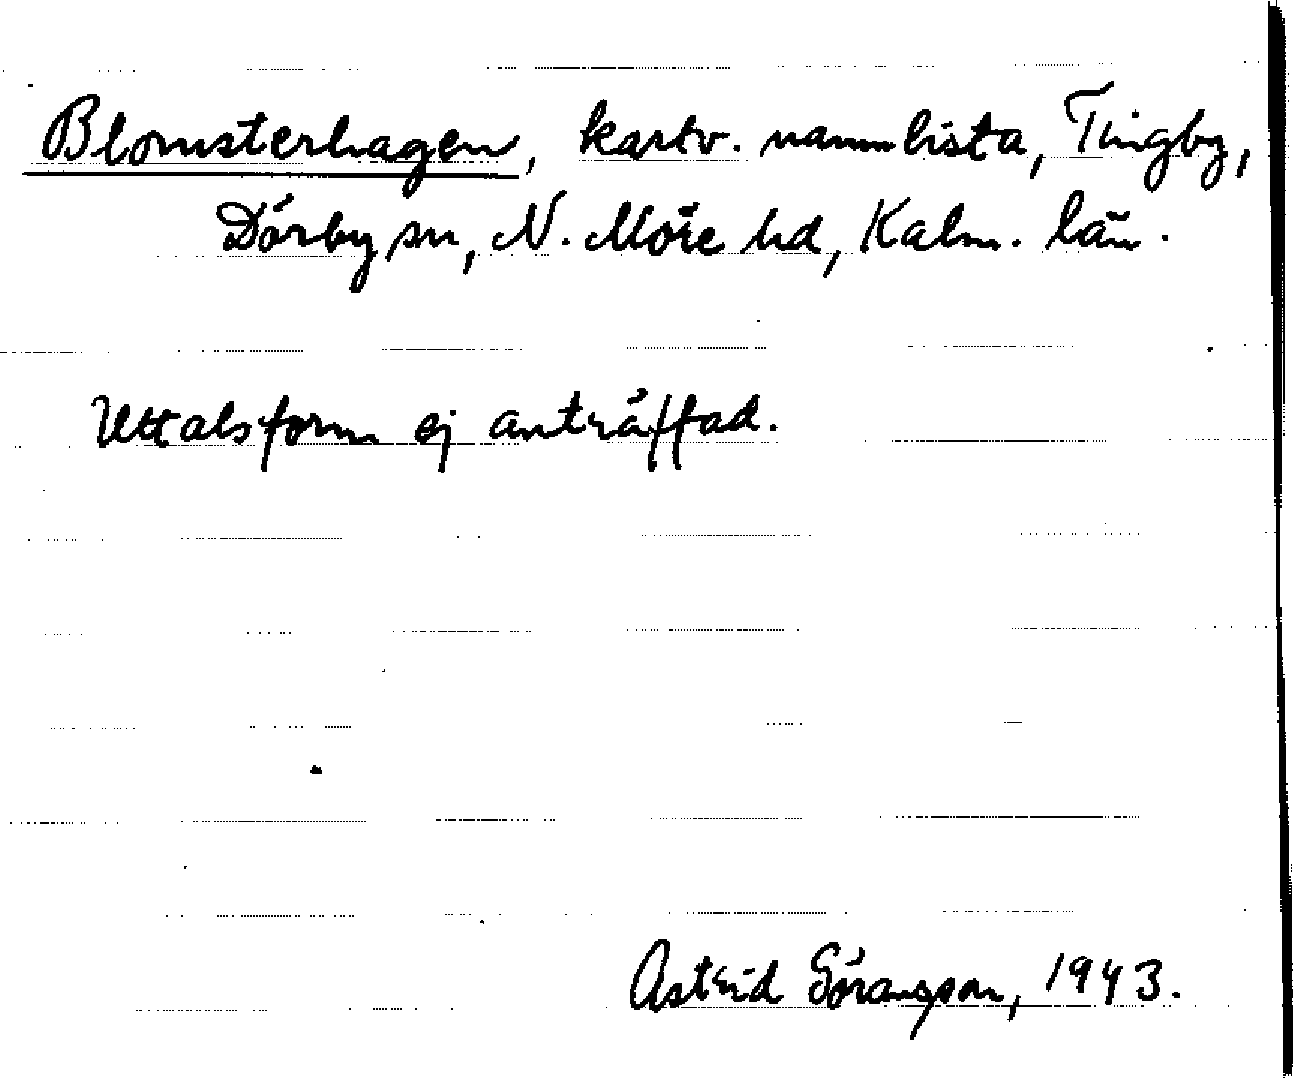 Blomsterhagen, kartv. namnlista, Tingby,
Dörby sn, N. Möre hd, Kalm. län.
Uttalsform ej anträffad.
Astrid Göransson, 1943.